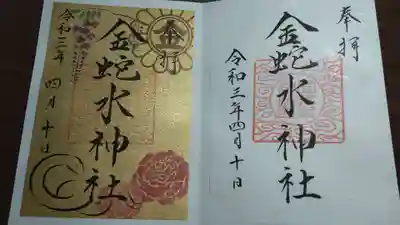 奉拝
金蛇水神社
令和三年四月十日
奉拝
金蛇水神社
令和三年四月十日